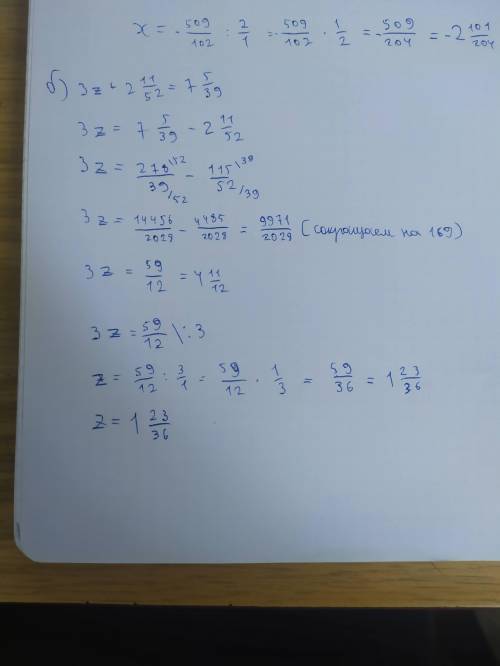 x = -509/102 : 2/1 = -509/102 · 1/2 = -509/204 = -2 101/204
б) 3z + 2 11/52 = 7 5/39
3z = 7 5/39 - 2 11/52
3z = 278\52/39/52 - 115\39/52/39
3z = 14456/2028 - 4485/2028 = 9971/2028 (сокращаем на 169)
3z = 59/12 = 4 11/12
3z = 59/12 \:3
z = 59/12 : 3/1 = 59/12 · 1/3 = 59/36 = 1 23/36
z = 1 23/36